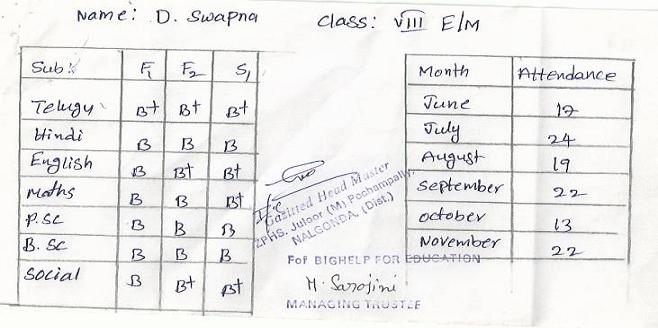 Name: D. Swapna Class: VIII E/M
Sub: F1 F2 S1
Telugu B+ B+ B+
Hindi B B B
English B B+ B+
Maths B B B+
P.Sc B B B
B.Sc B B B
Social B B+ B+
Month Attendance
June 17
July 24
August 19
September 22
october 13
November 22
Gazitted Head Master
ZPHS. Juloor (M) Pochampally,
NALGONDA, (Dist.)
For BIGHELP FOR EDUCATION
M. Sarojini
MANAGING TRUSTEE